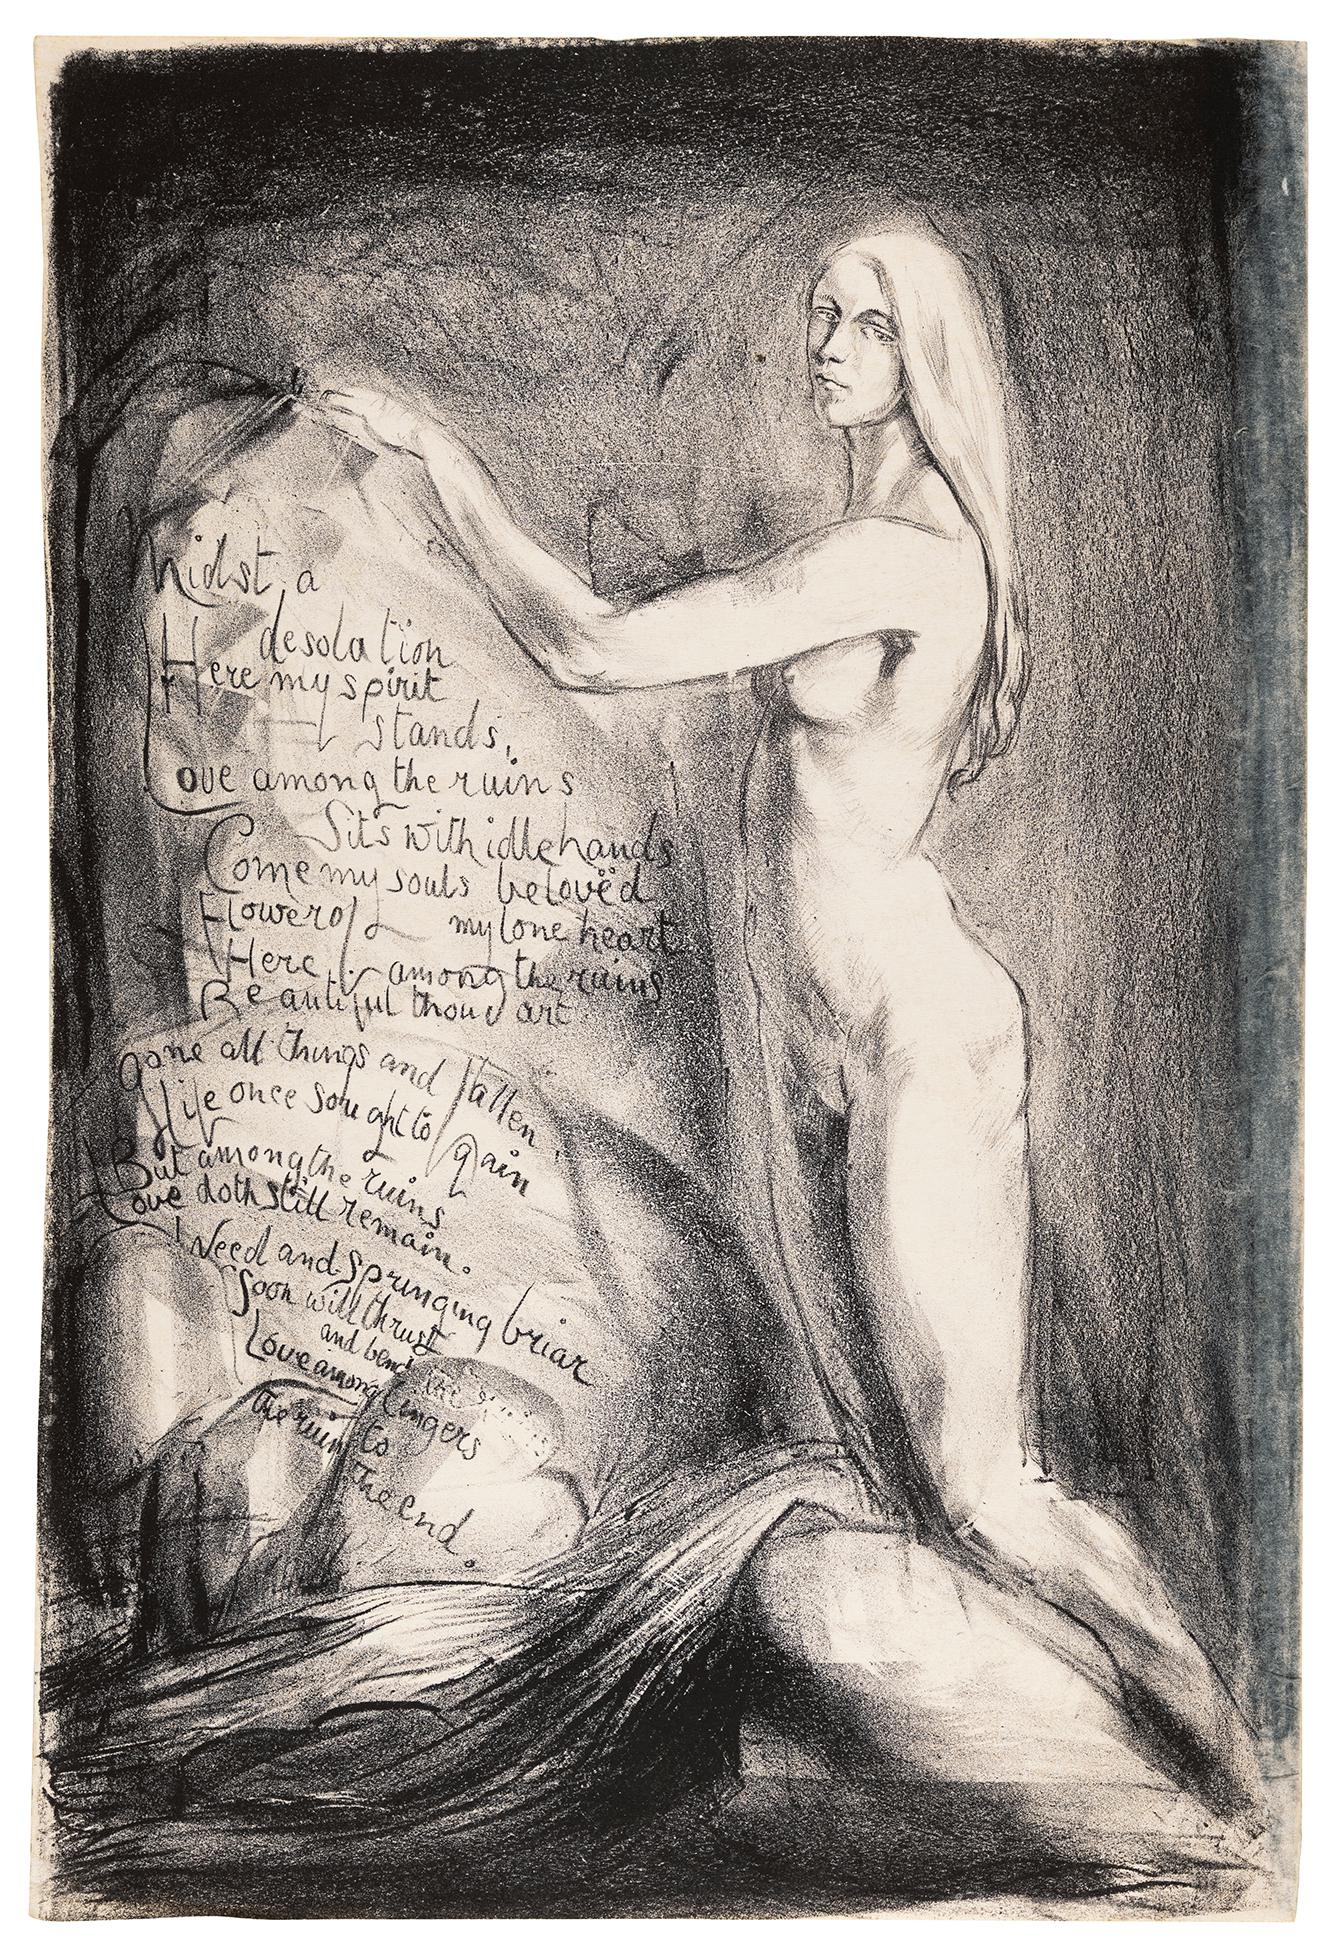 Midst a
desolation
Here my spirit
stands,
Love among the ruins
Sits with idle hands
Come my souls belovëd
Flower of my lone heart
Here among the ruins
Beautiful thou art
gone all things and fallen
life once sought to gain
But among the ruins
Love doth still remain.
Weed and springing briar
Soon will thrust
and bend
Love among lingers
the ruin to
The end.